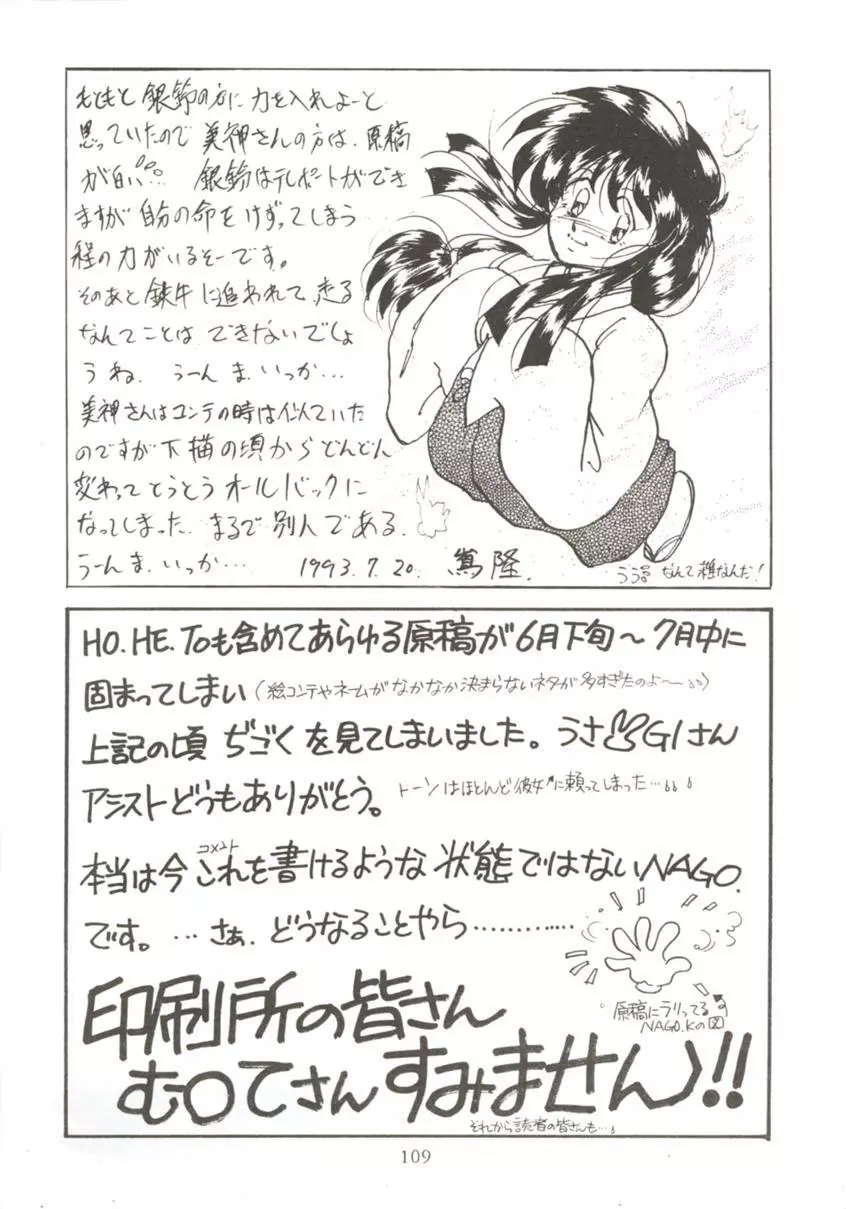 もともと 銀鈴の方に 力を入れよーと
思っていたので 美神さんの方は、原稿
が白い… 銀鈴はテレポートができ
ますが 自分の命をけずってしまう
程の力がいるそーです。
そのあと 鉄牛に追われて、走る
なんてことは できないでしょ
うね. うーん ま、いっか…
美神さんはコンテの時は似ていた
のですが 下描の頃から どんどん
変わって とうとう オールバックに
なってしまった. まるで 別人である.
うーん ま、いっか… 1993. 7. 20. 篤 隆.
ううっ なんて 雑なんだ!
HO. HE. Toも含めてあらゆる原稿が 6月下旬～7月中に
固まってしまい (絵コンテやネームがなかなか決まらないネタが多すぎたのよ～)
上記の頃 ぢごくを見てしまいました。 うさGIさん
アシストどうもありがとう。 トーンはほとんど彼女に頼ってしまった…
コメント
本当は今これを書けるような状態ではないNAGO.
です。 … さぁ. どうなることやら…………
原稿にラリってる
NAGO.Kの図
印刷所の皆さん
む○てさん すみませんっ!!
それから読者の皆さんも…
109